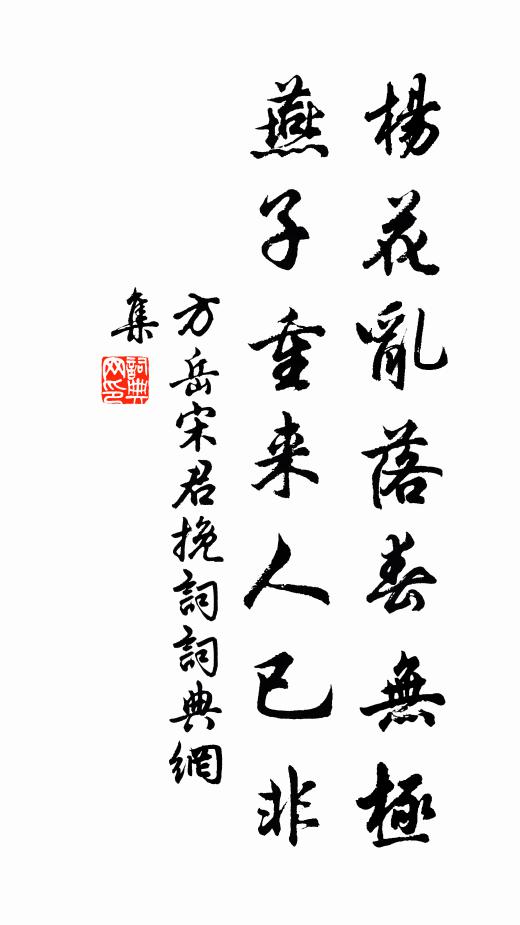 楊花亂落春無極
燕子重来人已非
方岳宋君挽詞詞典網
集
詞典
网印